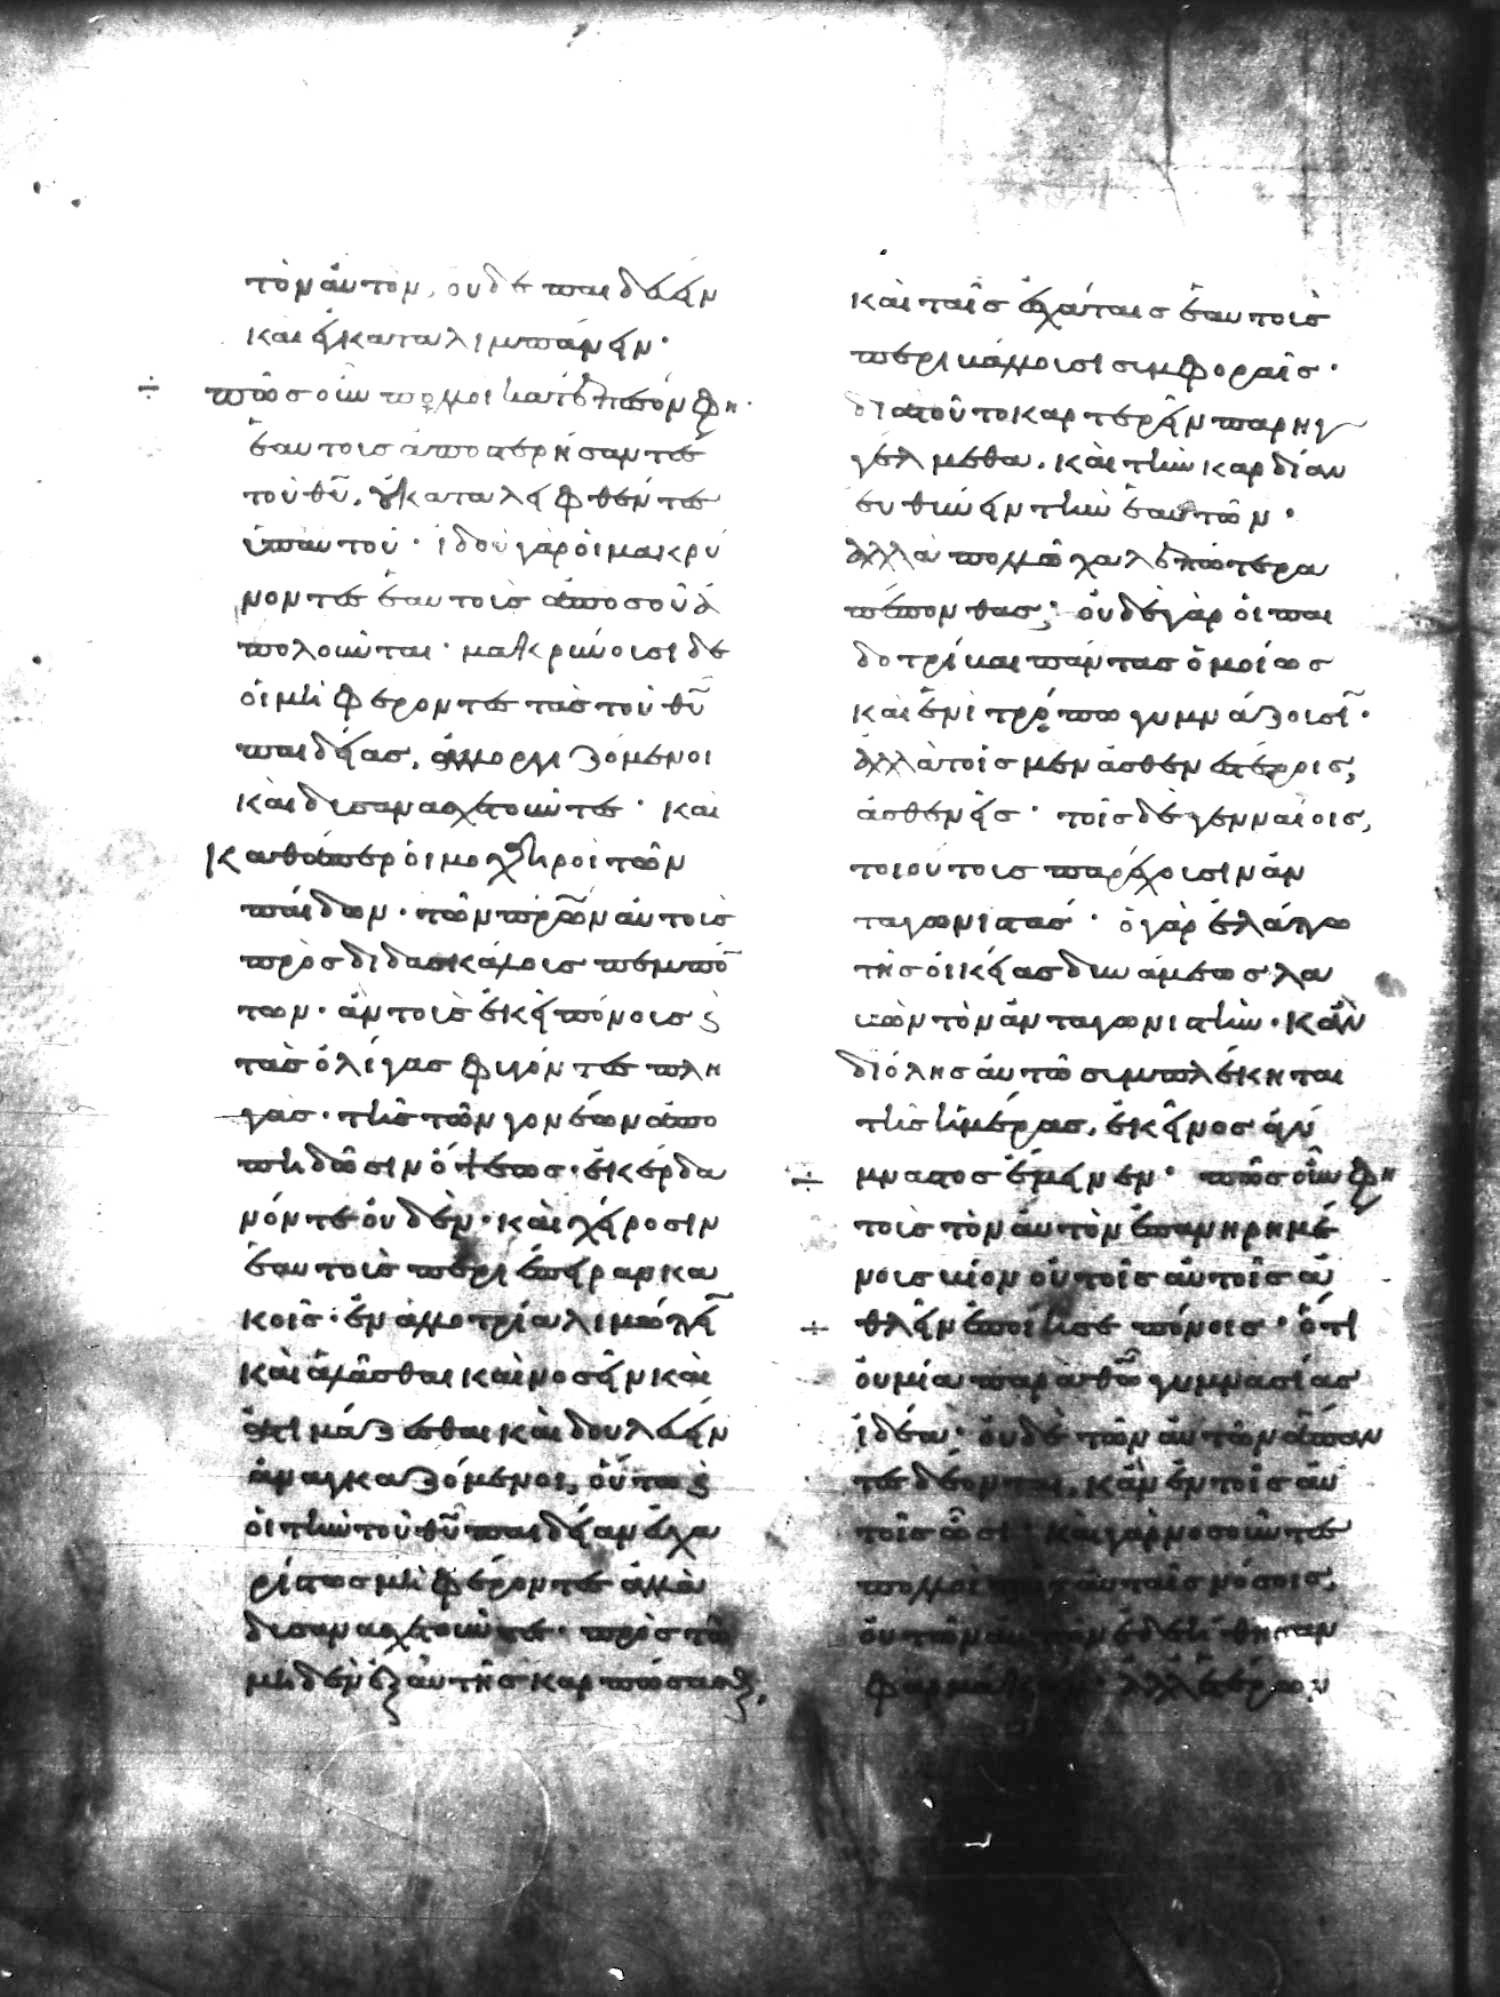 τὸν ἀυτὸν, ουδὲ παιδέυειν
και ἐγκαταλιμπάνειν·
÷ πῶς οὖν πολλοὶ κατέπεσόν φη·
ἑαυτοὺς ἀποστερήσαντες
τοῦ θυ̅, ἐγκαταλειφθέντες
ὑπ' αυτοῦ· ἰδοὺ γὰρ οἱ μακρύ
νοντες ἑαυτοὺς ἀπὸ σοῦ ἀ
πολοῦνται· μακρύνουσι δὲ
οἱ μὴ φέροντες τὰς τοῦ θυ̅
παιδείας, ἀλλ' οργιζόμενοι
καὶ δυσανασχετοῦντες· καὶ
καθάπερ οἱ μοχθηροὶ τῶν
παίδων· τῶν πρ̅ων ἀυτοὺς
πρὸς διδασκάλους πεμπό
των· ἀυτοὺς ἐκεῖ πόνους ϛ
τὰς ὀλίγας φυγόντες πλη
γὰς· τῆς τῶν γονέων ἀπο
πηδῶσιν ὄψεως· ἐκέρδα
νόν τε οὐδὲν· καὶ χείροσιν
ἑαυτοὺς περιέπειραν κα
κοῖς· ἐν ἀλλοτρία λιμῶ πῆ
καὶ ἀλᾶσθαι καὶ νοσεῖν καὶ
ἀτιμάζεσθαι καὶ δουλέυειν
ἀναγκαζόμενοι, οὕτως
οἱ τὴν τοῦ θυ̅ παιδείαν ἀχα
ρίστως μὴ φέροντες ἀλλὰ
δυσανασχετοῦντες· πρὸς τῶ
μηδὲν ἐξ αὐτῆς καρπώσασθαι,
καὶ ταῖς ἐσχάταις ἑαυτοὺς
περιβάλλουσι συμφοραῖς·
διατοῦτο καρτερεῖν παρηγ
γέλμεθα, καὶ τὴν καρδίαν
ευθύνειν τὴν ἑαυτῶν·
ἀλλὰ πολλῶ χαλεπώτερα
πέπονθας; οὐδὲ γὰρ οἱ παι
δοτρίβαι πάντας ὁμοίως
καὶ ἑνὶ τρόπω γυμνάζουσῖ·
ἀλλὰ τοῖς μὲν ἀσθενεστέροις,
ἀσθενεῖς· τοῖς δὲ γενναίοις,
τοιούτους παρέχουσιν ἀν
ταγωνιστάς· ὁ γὰρ ἐλάττω
τῆς οἰκείας δυνάμεως λα
βὼν τὸν ἀνταγωνιστὴν· κἂν
διόλης ἀυτῶ συμπλέκηται
τῆς ἡμέρας, ἐκεῖνος ἀγύ
μναστος ἔμεινεν· πῶς οὖν φη
÷ τοῖς τὸν ἀυτὸν ἐπανηρημέ
νοις βίον οὐ τοῖς ἀυτοῖς ἀ
÷ θλεῖν ἐποίησε πόνοις· ὅτι
οὐ μία παρὰ θῶ γυμνασίας
ἰδέα· οὐδὲ τῶν ἀυτῶν ἅπαν
τες δέονται, κἂν ἐν τοῖς αὐ
τοῖς ὦσι· καὶ γὰρ νοσοῦντες
πολλοὶ τὰς ἀυτὰς νόσους,
οὐ τῶν αὐτῶν ἐδεήθησαν
φαρμάκων· ἀλλ' ἑτέρων